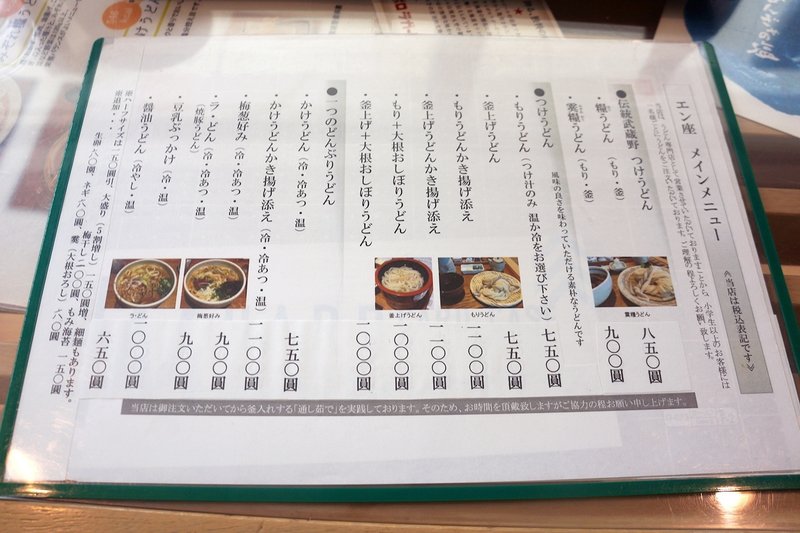 エン座 メインメニュー
≪当店は税込表記です≫
当店は、うどん専門店として営業させていただいておりますことから、小学生以上のお客様には
一名様ごとにうどんをご注文いただいております。ご理解の程よろしくお願い致します。
●伝統武蔵野 つけうどん
・糧うどん (もり・釜) 八五〇圓
・霙糧うどん (もり・釜) 九〇〇圓
霙糧うどん
●つけうどん 風味の良さを味わっていただける素朴なうどんです
・もりうどん (つけ汁のみ 温か冷をお選び下さい) 七五〇圓
・釜上げうどん 七五〇圓
・もりうどんかき揚げ添え 一一〇〇圓
・釜上げうどんかき揚げ添え 一一〇〇圓
・もり+大根おしぼりうどん 一〇〇〇圓
・釜上げ+大根おしぼりうどん 一〇〇〇圓
もりうどん
釜上げうどん
●一つのどんぶりうどん
・かけうどん (冷・冷あつ・温) 七五〇圓
・かけうどんかき揚げ添え (冷・冷あつ・温) 一一〇〇圓
・梅葱好み (冷・冷あつ・温) 九〇〇圓
・ラ・どん (冷・冷あつ・温)
(焼豚うどん)
・豆乳ぶっかけ (冷・温) 九〇〇圓
一〇〇〇圓
・醤油うどん (冷やし・温) 六五〇圓
梅葱好み
ラ・どん
※ハーフサイズは一五〇圓引、大盛り(5割増し)一五〇圓増、細麺もあります。
※追加・・ 生卵 八〇圓、ネギ 八〇圓、梅干し一〇〇圓、もみ海苔 一五〇圓
霙(大根おろし) 八〇圓
当店は御注文いただいてから釜入れする「通し茹で」を実践しております。そのため、お時間を頂戴致しますがご協力の程お願い申し上げます。